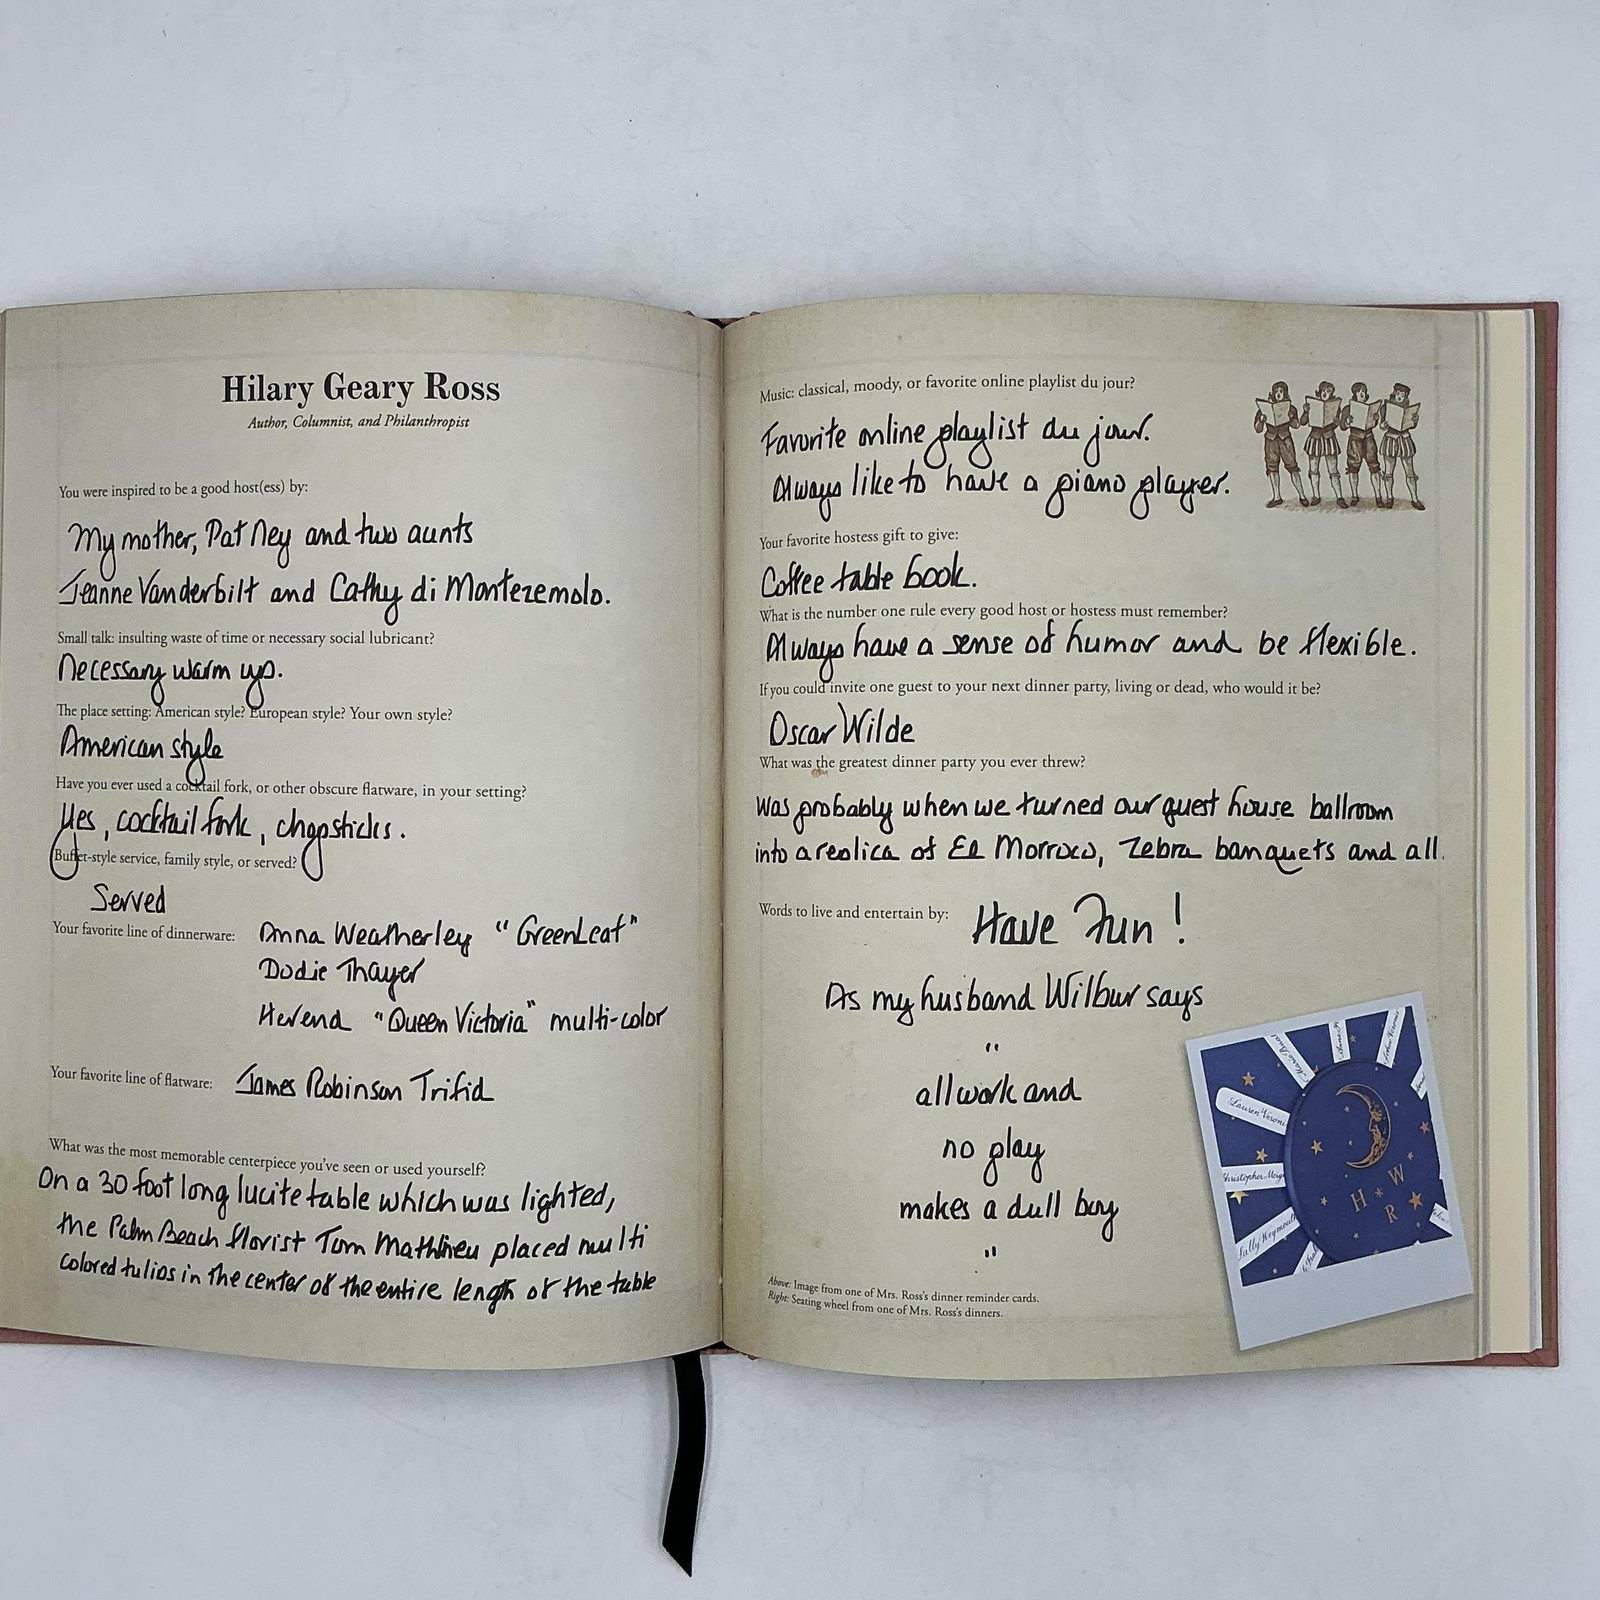 Hilary Geary Ross
Author, Columnist, and Philanthropist
You were inspired to be a good host(ess) by:
My mother, Pat Ney and two aunts
Jeanne Vanderbilt and Cathy di Montezemolo.
Small talk: insulting waste of time or necessary social lubricant?
Necessary warm ups.
The place setting: American style? European style? Your own style?
American style
Have you ever used a cocktail fork, or other obscure flatware, in your setting?
Yes, cocktail fork, chopsticks.
Buffet-style service, family style, or served?
Served
Your favorite line of dinnerware: Anna Weatherley "GreenLeaf"
Dodie Thayer
Herend "Queen Victoria" multi-color
Your favorite line of flatware: James Robinson Trifid
What was the most memorable centerpiece you've seen or used yourself?
On a 30 foot long lucite table which was lighted,
the Palm Beach florist Tom Mathieu placed multi
colored tulips in the center of the entire length of the table
Music: classical, moody, or favorite online playlist du jour?
Favorite online playlist du jour.
Always like to have a piano player.
Your favorite hostess gift to give:
Coffee table book.
What is the number one rule every good host or hostess must remember?
Always have a sense of humor and be flexible.
If you could invite one guest to your next dinner party, living or dead, who would it be?
Oscar Wilde
What was the greatest dinner party you ever threw?
was probably when we turned our guest house ballroom
into a replica of El Morroco, Zebra banquets and all.
Words to live and entertain by: Have Fun!
As my husband Wilbur says
"
all work and
no play
makes a dull boy
"
Above: Image from one of Mrs. Ross's dinner reminder cards.
Right: Seating wheel from one of Mrs. Ross's dinners.
Lauren Veroni
Christopher
Sally Weymouth
H * W
R